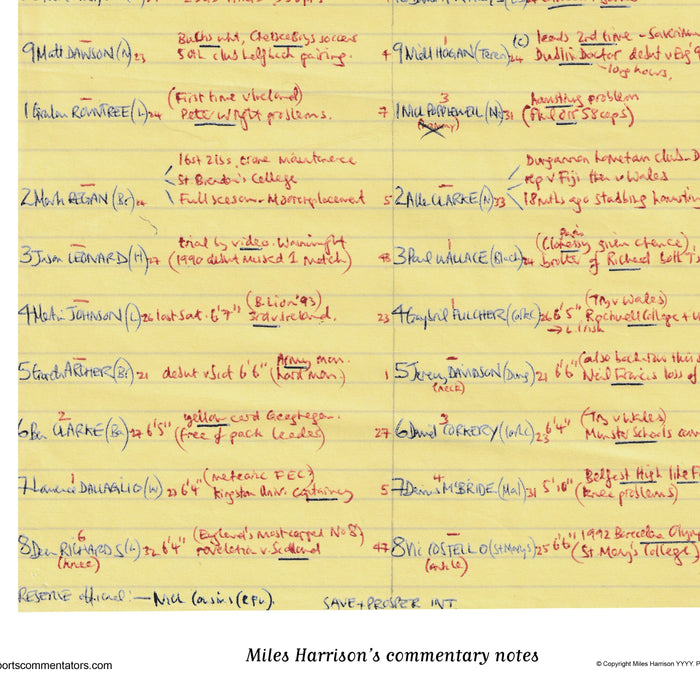 9 Matt DAWSON (N) 23
50th club halfback pairing.
4 9 Niall HOGAN (Teren) 24
(c) leads 2nd time - Saverimutto
Dublin Doctor debut v Eng 9
long hours,
1 Graham ROWNTREE (L) 24
(First time v Ireland)
Peter Wright problems.
3
7 1 Nick POPPLEWELL (N) 31
hamstring problem
2 Mark REGAN (Br) 24
St. Brendan's College
Full season - Moore replacement
5 2 Allen CLARKE (N) 33
Dungannon hometown club - D
rep v Fiji then v Wales
18 mths ago studying hamstring
3 Jason LEONARD (H) 27
trial by video. Wainwright
(1990 debut missed 1 match)
48 3 Paul WALLACE (Black) 24
brother of Richard both
4 Martin JOHNSON (L) 26 last sat. 6'7"
(B. Lion '93)
3rd v Ireland.
23 4 Gabriel FULCHER (Cork) 26 6'5"
(Try v Wales)
Rockwell College +
→ L. Irish
5 Garath ARCHER (Br) 21 debut v Scot 6'6"
Army man.
(hard man)
1 5 Jeremy DAVIDSON (Dung) 21 6'6"
(neck)
(also back-row this
Neil Francis loss of
2
6 Ben CLARKE (Ba) 27 6'5"
yellow card Geoghegan.
(free of pack leader)
3
27 6 David CORKERY (Cork) 23 6'4"
(Try v Wales)
Munster Schools
1
7 Lawrence DALLAGLIO (W) 23 6'4"
(meteoric FEC)
Kingston Univ. captaincy
4
5 7 Denis McBRIDE (Mal) 31 5'10"
Belfast High like
(knee problems)
6
8 Dean RICHARDS (L) 32 6'4"
(knee)
(England's most capped No 8)
revelation v Scotland
47 8 Vic COSTELLO (St Marys) 25 6'6"
(Ankle)
1992 Barcelona Olymp
(St. Mary's College)
RESERVE official: — Nick Cousins (RFU).
SAVE + PROSPER INT
Miles Harrison's commentary notes
portscommentators.com
© Copyright Miles Harrison YYYY. P